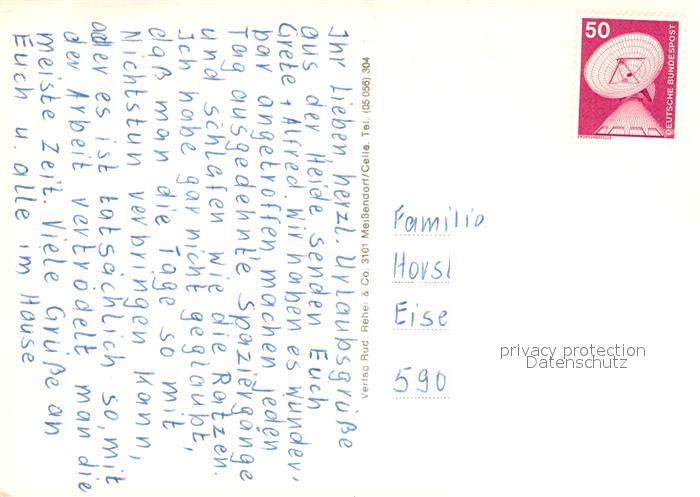 Ihr Lieben herzl. Urlaubsgrüße
aus der Heide senden Euch
Grete + Alfred. Wir haben es wunder-
bar angetroffen, machen jeden
Tag ausgedehnte Spaziergänge
und schlafen wie die Ratzen.
Ich habe gar nicht geglaubt,
daß man die Tage so mit
Nichtstun verbringen kann,
oder es ist tatsächlich so, mit
der Arbeit vertrödelt man die
meiste Zeit. Viele Grüße an
Euch u. alle im Hause
Verlag Rud. Reher & Co. 3101 Meißendorf/Celle. Tel. (05 056) 304
50
DEUTSCHE BUNDESPOST
ERDFUNKSTELLE
Familie
Horst
Eise
590
privacy protection
Datenschutz